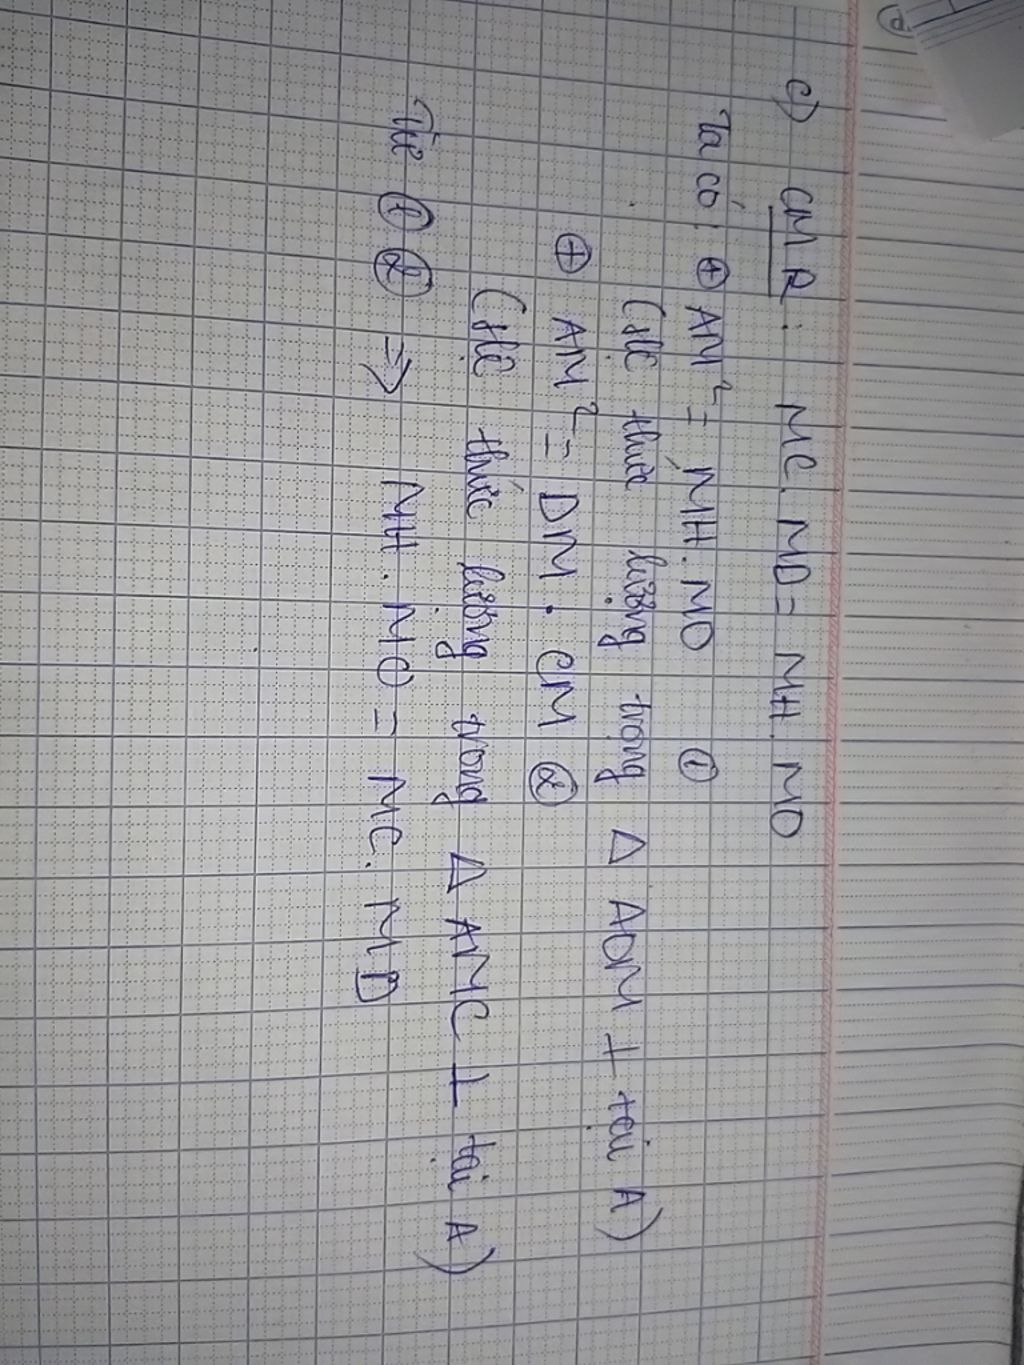 c) CMR: MC.MD = MH.MO
Ta có: ⊕ AM² = MH.MO ①
(Hệ thức lượng trong Δ AOM ⊥ tại A)
⊕ AM² = DM.CM ②
(Hệ thức lượng trong Δ AMC ⊥ tại A)
Từ ① ② => MH.MO = MC.MD